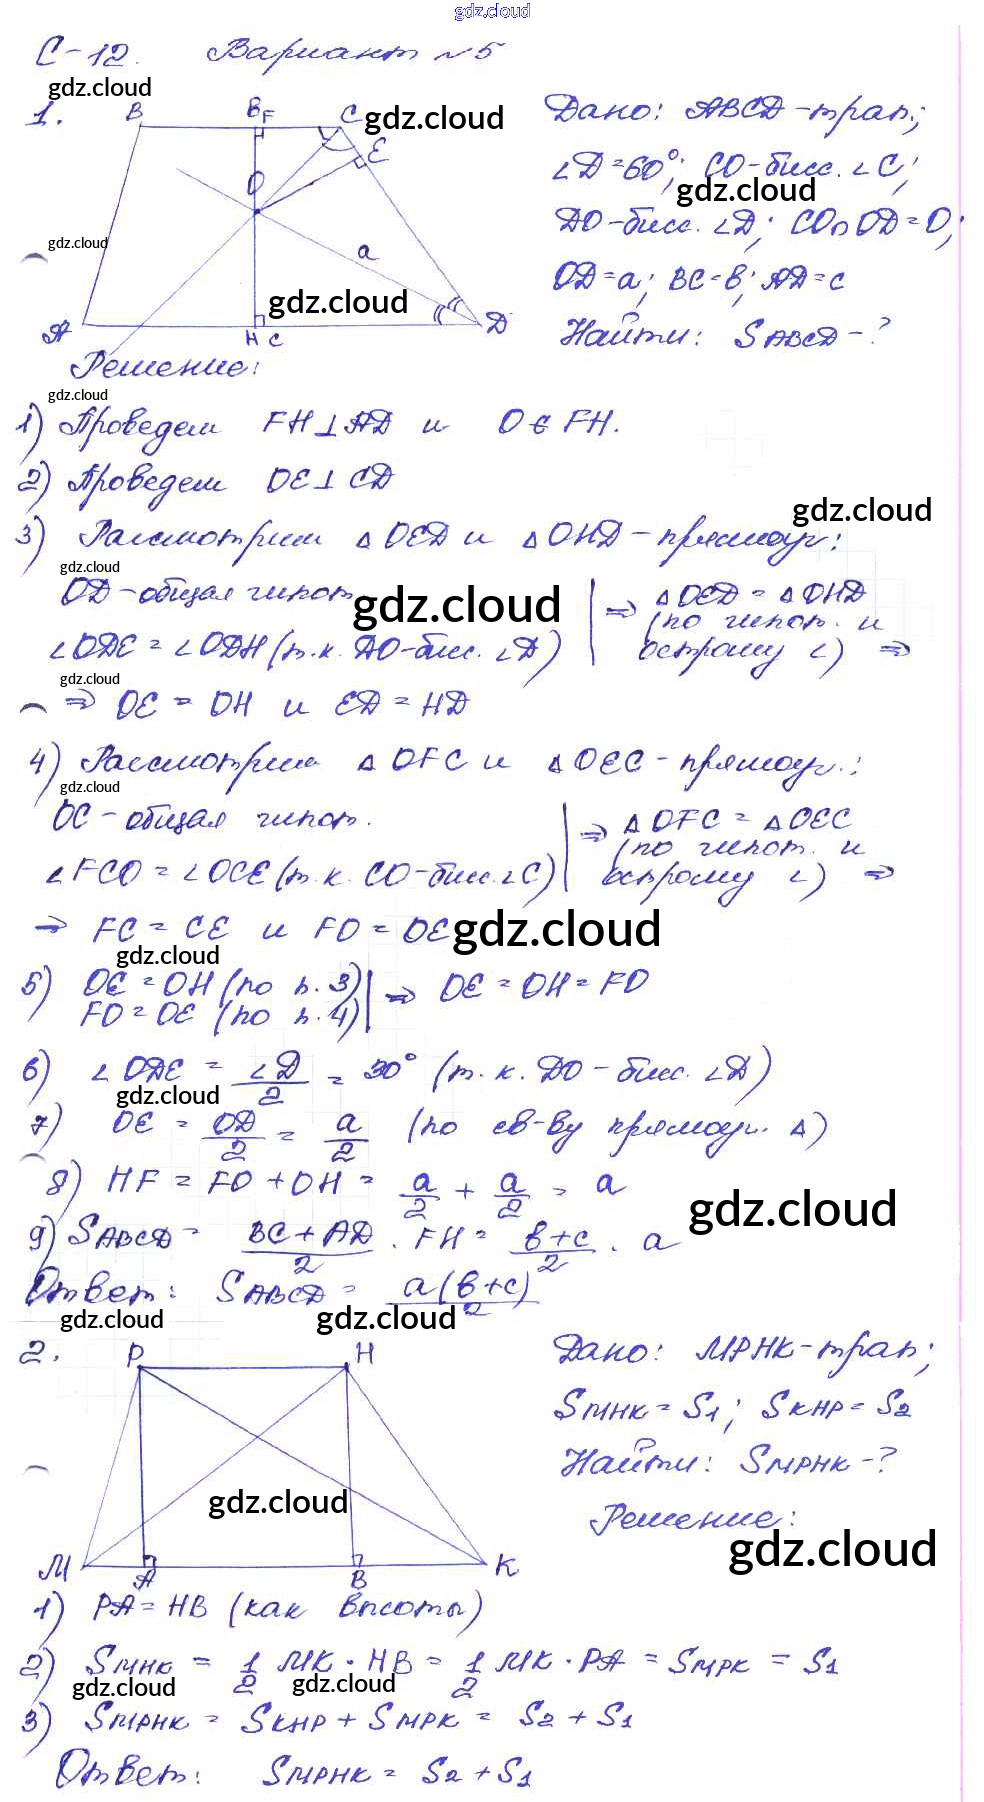 gdz.cloud
С-12. Вариант №5
gdz.cloud
1.
B
B
F
C
gdz.cloud
E
O
gdz.cloud
a
gdz.cloud
A
H
C
D
Дано: ABCD-трап.;
∠D=60°; CO-бисс. ∠C;
gdz.cloud
DO-бисс. ∠D; CO∩OD=O;
OD=a; BC=b; AD=c
Найти: SABCD-?
Решение:
gdz.cloud
1) Проведем FH⊥AD и O∈FH.
2) Проведем OE⊥CD
gdz.cloud
3) Рассмотрим △OED и △OHD-прямоуг:
gdz.cloud
OD-общая гипот.
gdz.cloud
∠ODE=∠ODH (т.к. DO-бис. ∠D)
⇒ △OED=△OHD
(по гипот. и
острому ∠) ⇒
gdz.cloud
⇒ OE = OH и ED=HD
4) Рассмотрим △OFC и △OEC-прямоуг.:
gdz.cloud
OC-общая гипот.
∠FCO=∠OCE (т.к. CO-бис. ∠C)
⇒ △OFC=△OEC
(по гипот. и
острому ∠) ⇒
⇒ FC=CE и FO=OE
gdz.cloud
gdz.cloud
5) OE=OH (по п.3)
FO=OE (по п.4)
⇒ OE=OH=FO
6) ∠ODE = ∠D/2 = 30° (т.к. DO-бис. ∠D)
gdz.cloud
7) OE = OD/2 = a/2 (по св-ву прямоуг. △)
8) HF = FO+OH = a/2 + a/2 = a
gdz.cloud
9) SABCD = BC+AD/2 · FH = b+c/2 · a
Ответ: SABCD = a(b+c)/2
gdz.cloud
gdz.cloud
2.
P
H
gdz.cloud
M
A
B
K
Дано: MPHK-трап;
SMHK=S1; SKHP=S2
Найти: SMPHK-?
Решение:
gdz.cloud
1) PA=HB (как высоты)
2) SMHK = 1/2 MK·HB = 1/2 MK·PA = SMPK = S1
gdz.cloud
gdz.cloud
3) SMPHK = SKHP+SMPK = S2+S1
Ответ: SMPHK = S2+S1